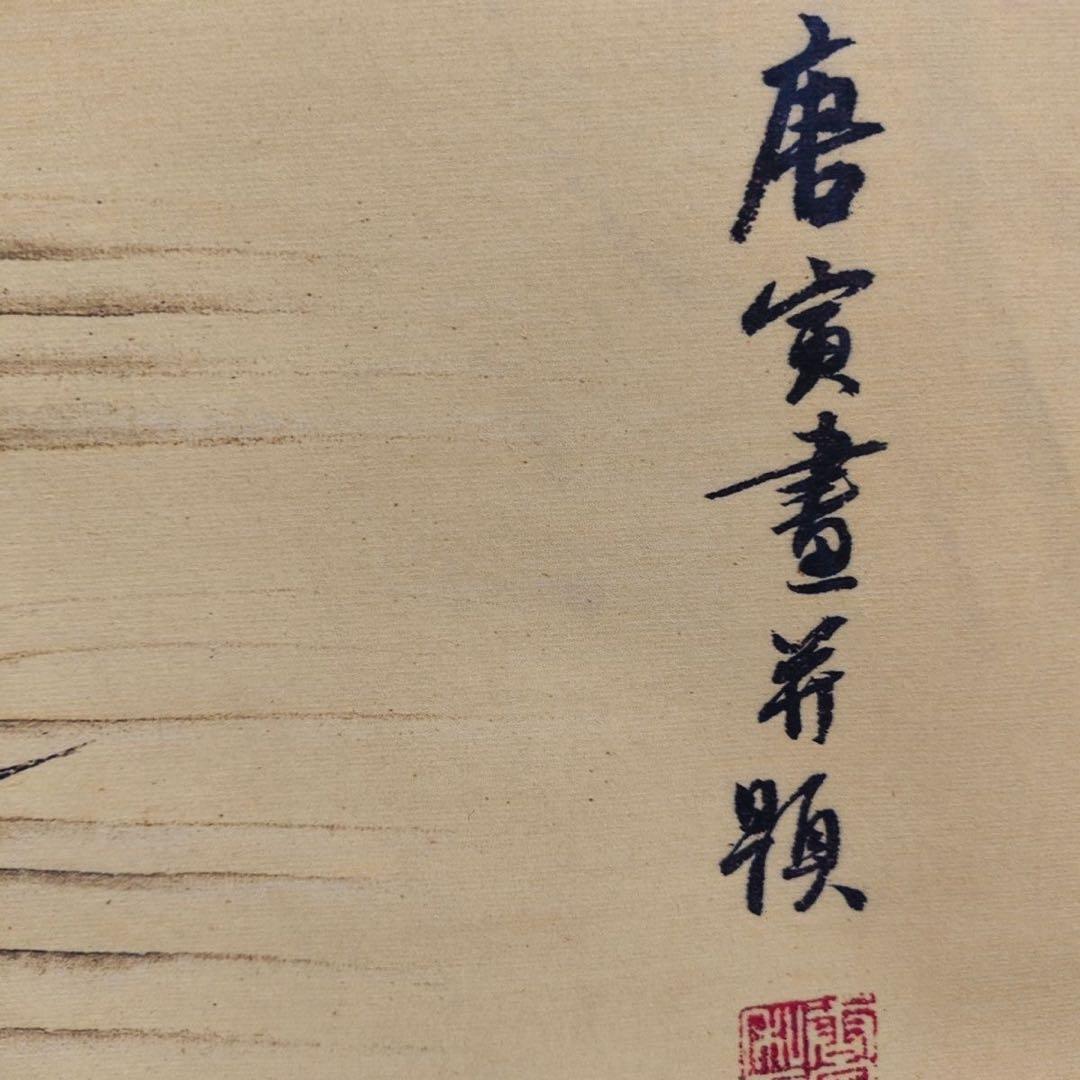 唐寅畫并題